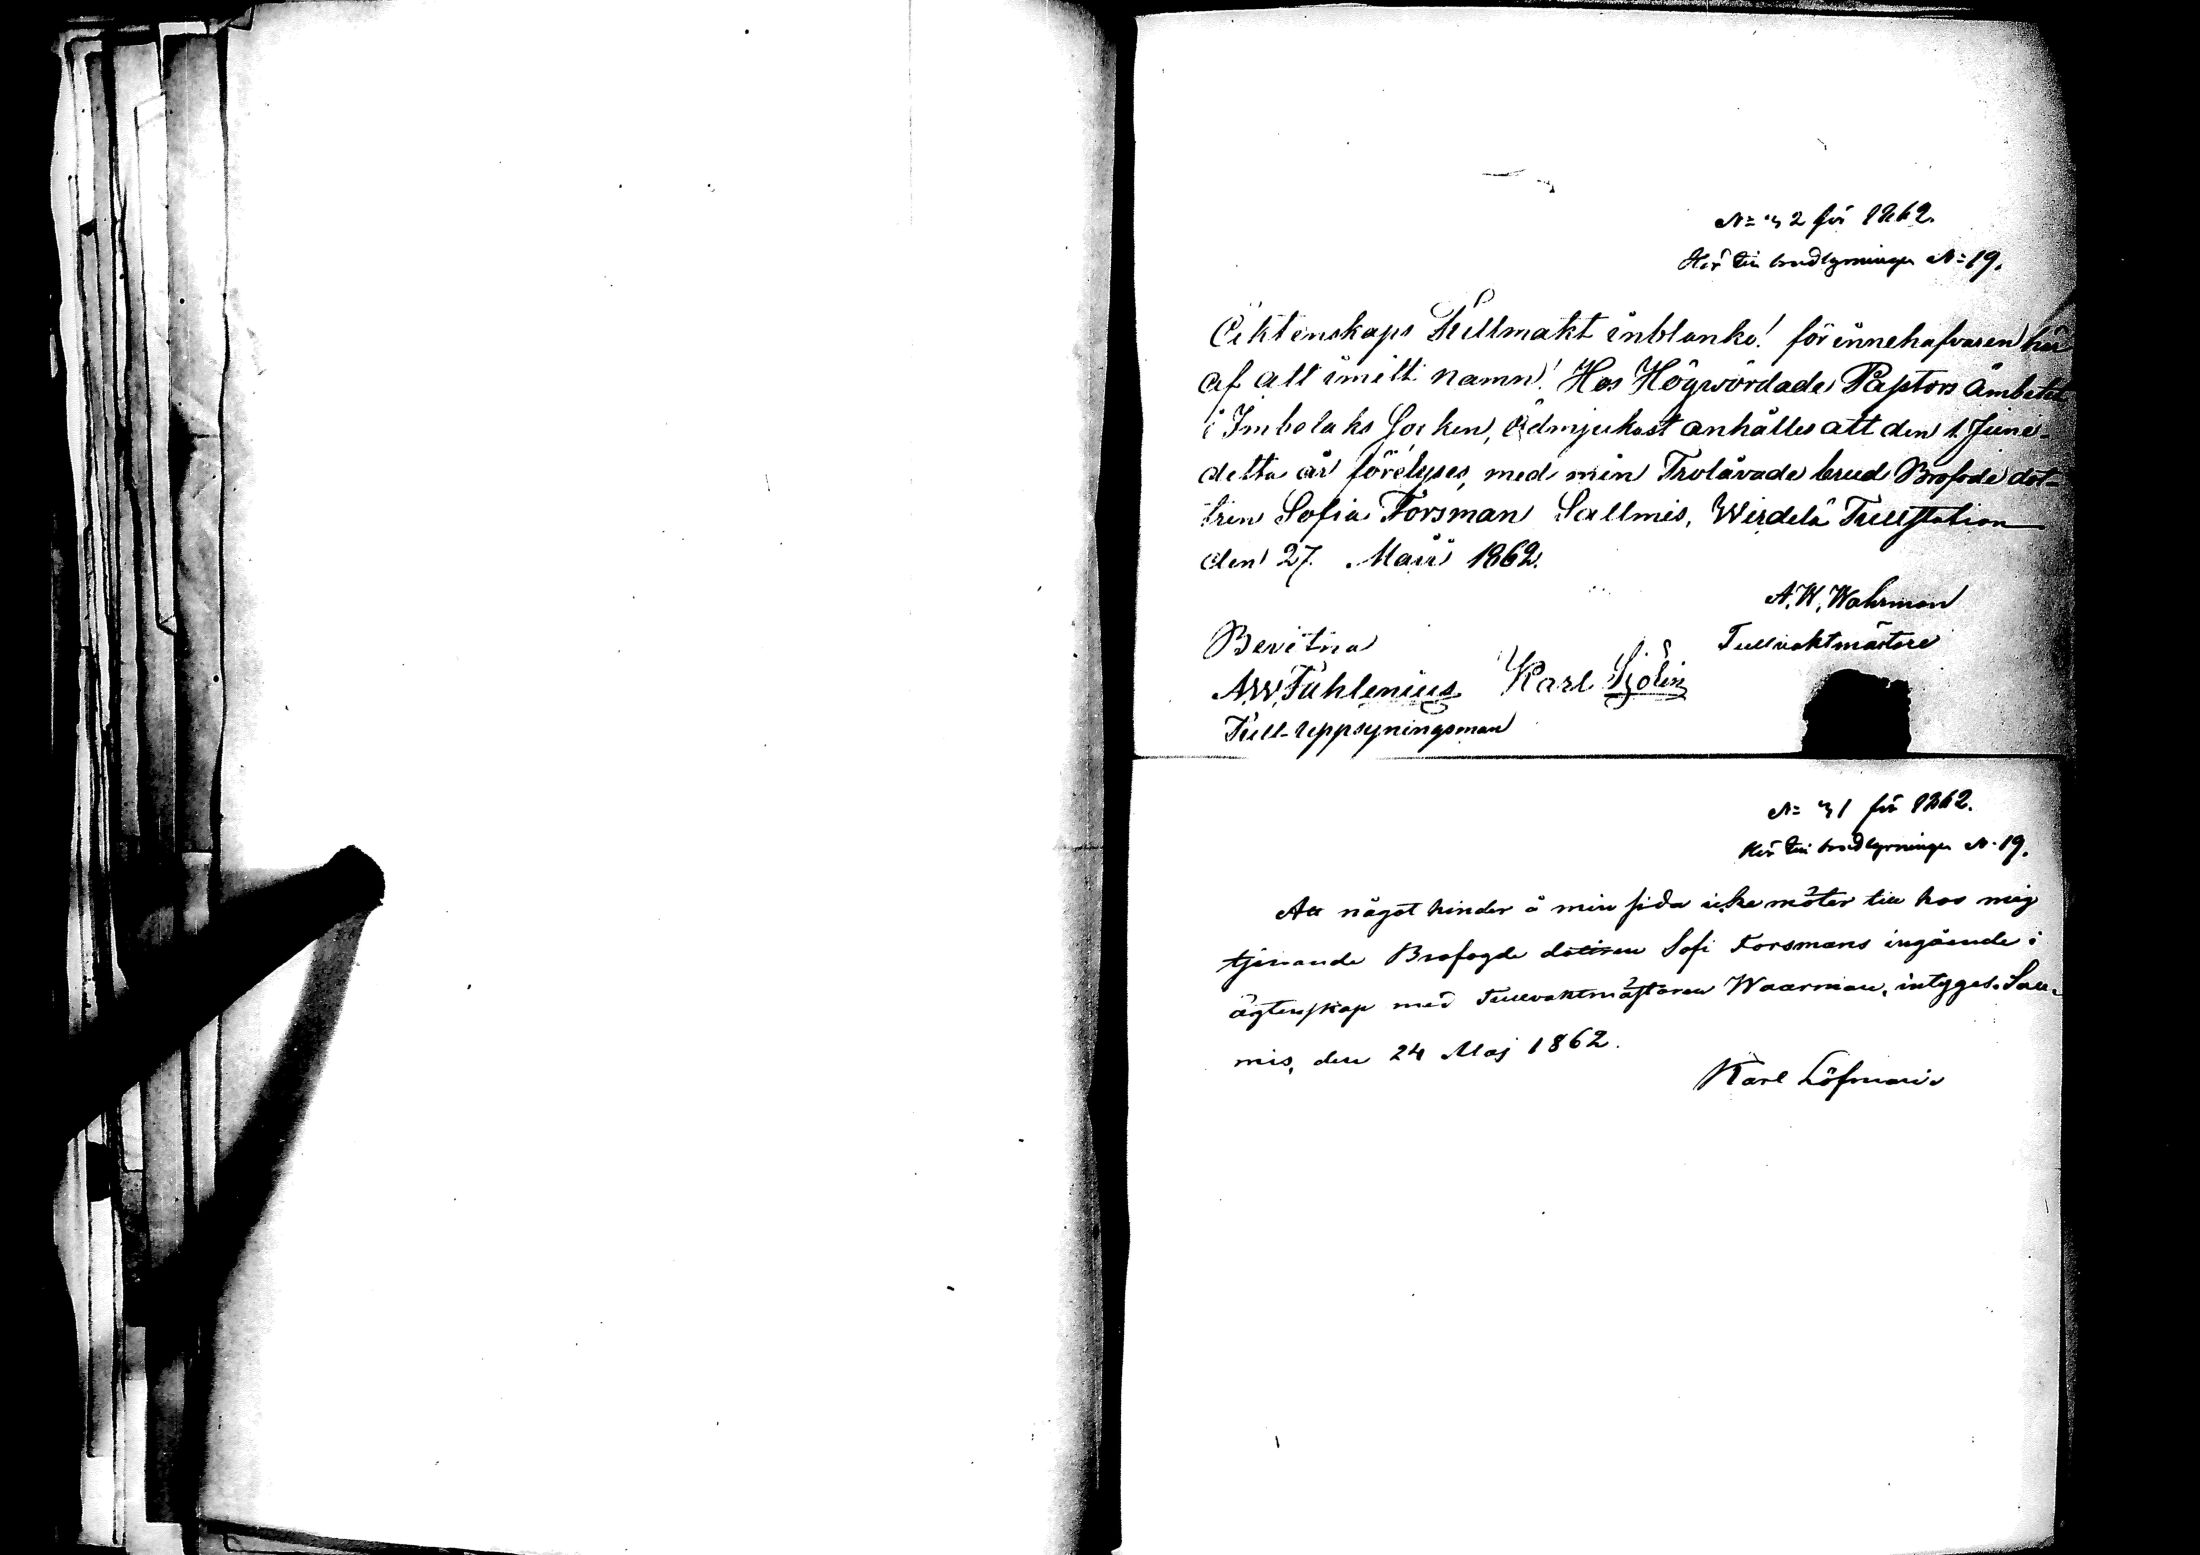 N: 32 för 1862.
Hör till Lysningen N: 19.
Ecktenskaps Fullmakt inblanko! för innehafvaren här
af att i mitt namn! Hos Högwördade Pastors Ämbetet
i Imbolaks Socken, Ödmjukast anhålles att den 1. Juni
detta år förelyses, med min Trolåvade brud Brofode dot-
tren Sofia Forsman Sallmis, Wirdelä Tullstation
den 27. Maii 1862.
A. W. Wahrman
Tullvaktmästare
Bevitna
A.W. Fuhlenius Karl Sjölin
Tull-Uppsyningsman
N: 31 för 1862.
Hör till Lysningen N. 19.
Att något hinder å min sida icke möter till hos mig
tjenande Brofogde dottren Sofi Forsmans ingående i
ägtenskap med Tullvaktmästaren Waarman, intygges. Sall-
mis, den 24 Maj 1862.
Karl Löfman